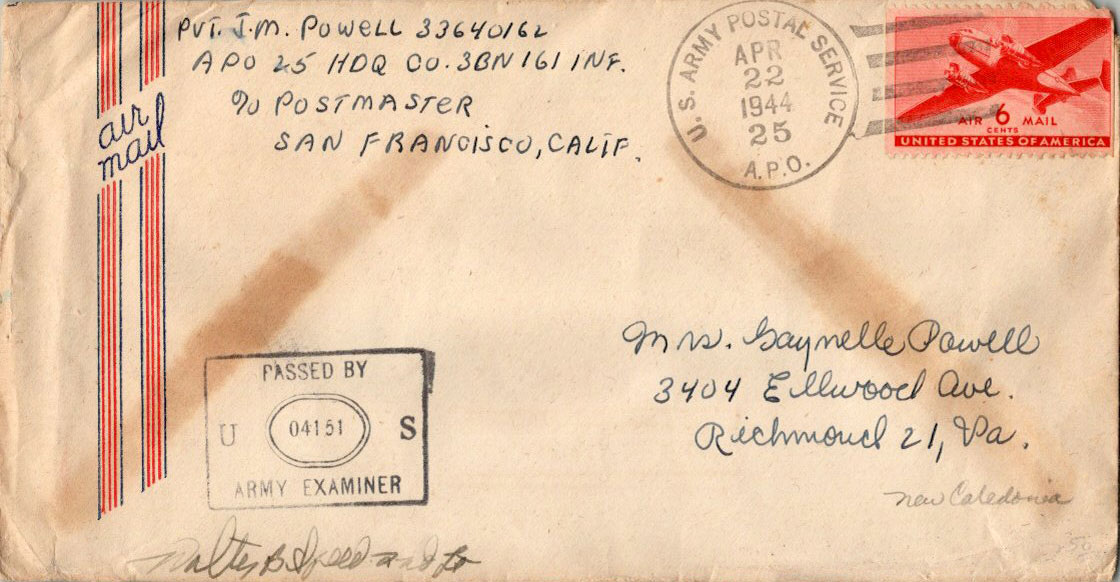 PVT. J.M. POWELL 33640162
APO 25 HDQ CO. 3BN 161 INF.
c/o POSTMASTER
SAN FRANCISCO, CALIF.
air
mail
U.S. ARMY POSTAL SERVICE
APR
22
1944
25
A.P.O.
AIR 6 MAIL
CENTS
UNITED STATES OF AMERICA
Mrs. Gaynelle Powell
3404 Ellwood Ave.
Richmond 21, Va.
new Caledonia
PASSED BY
U 04151 S
ARMY EXAMINER
Walter B